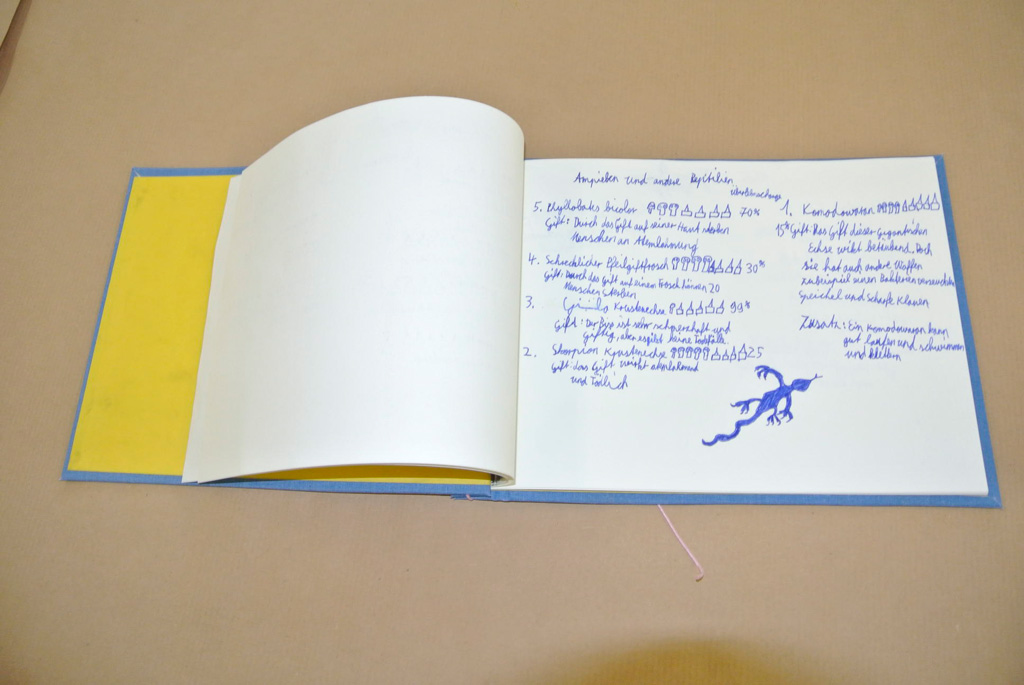 Ampieben und andere Reptilien
5. Phyllobates bicolor 70%
Gift: Durch das Gift auf seiner Haut sterben
Menschen an Atemlämung
4. Schrecklicher Pfeilgiftfrosch 30%
Gift: Durch das Gift auf einem Frosch können 20
Menschen sterben
3. Krustenechse 99%
Gift: Der Biss ist sehr schmerzhaft und
giftig, aber es gibt keine Todfälle.
2. Skorpion Krustenechse 25
Gift: das Gift wirkt atemlähmend
und Tödlich
1. Komodowaran
15% Gift: Das Gift dieser Gigantischen
Echse wirkt betäubend. Doch
sie hat auch andere Waffen
zubeispiel seinen Bakterien verseuchten
Speichel und Scharfe Klauen
Zusatz: Ein Komodowaran kann
gut laufen und schwimmen
und klettern